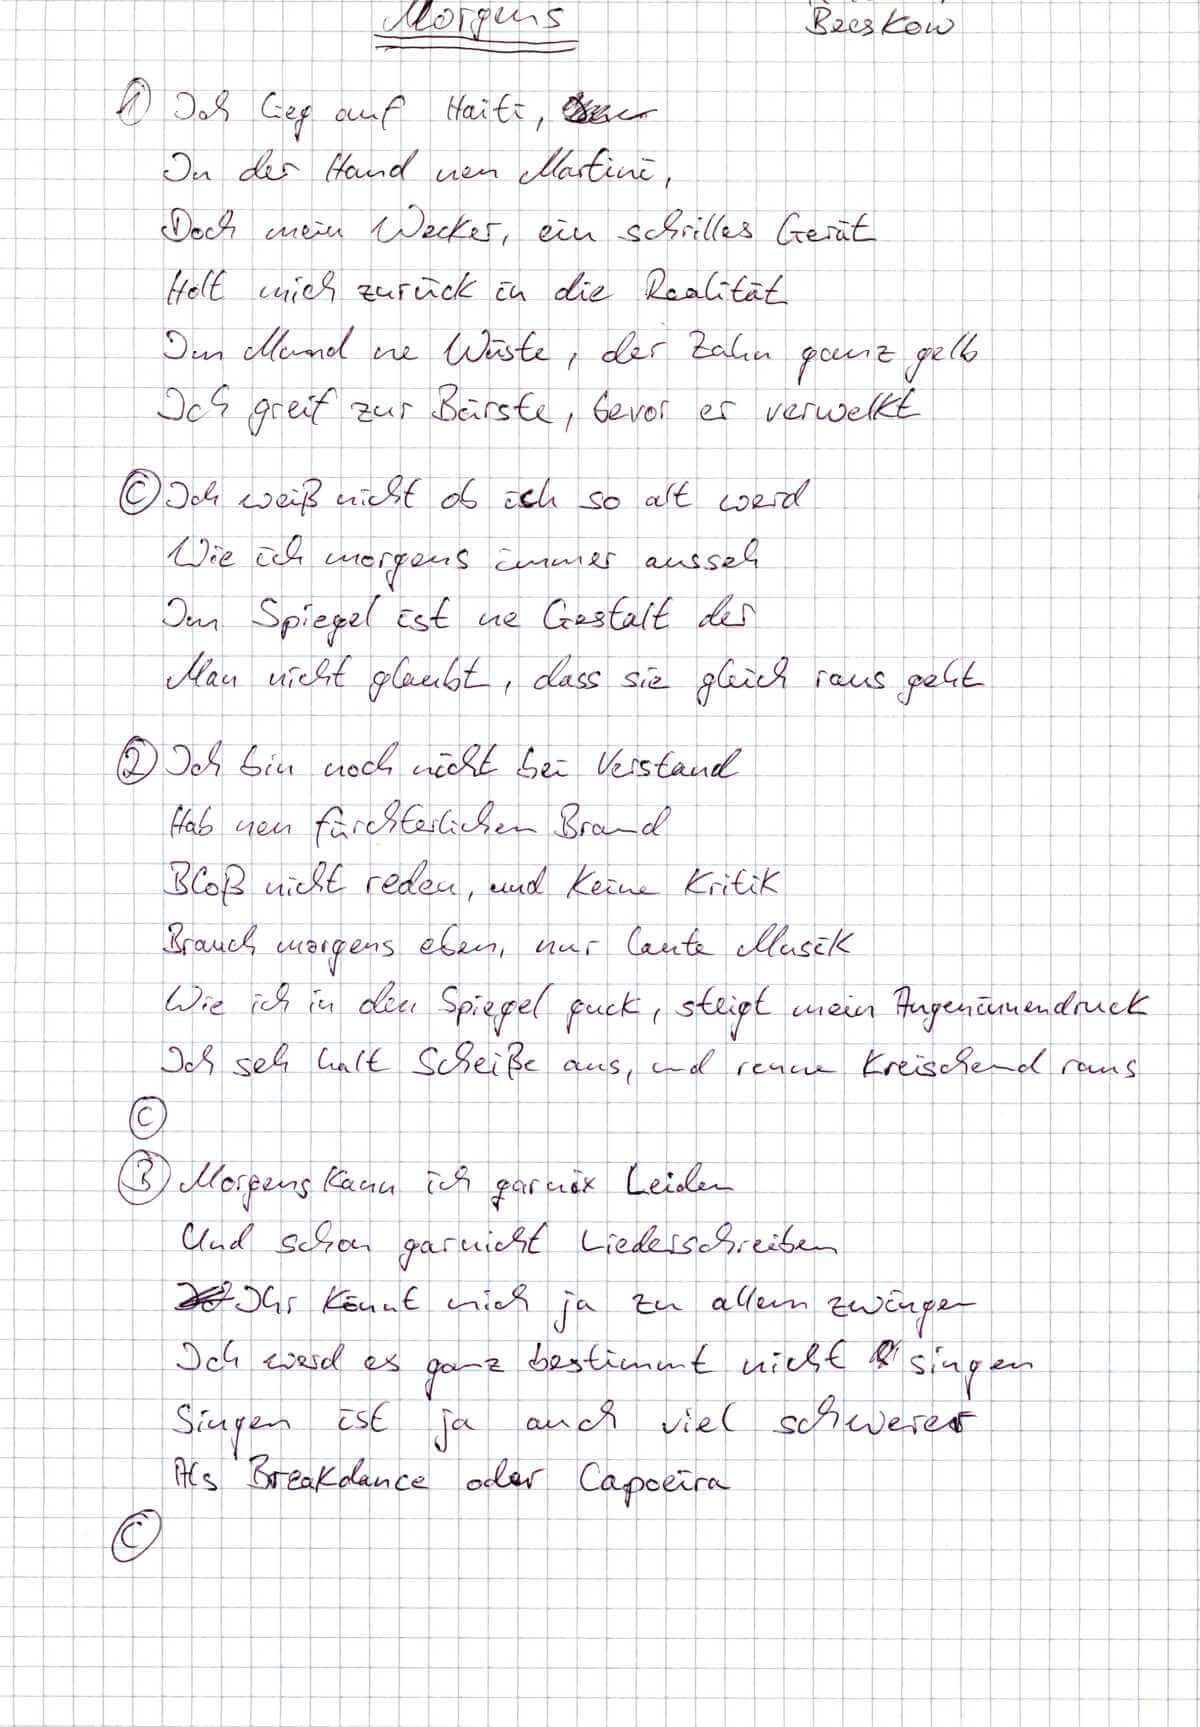 Morgens Beeskow
① Ich lieg auf Haiti,
In der Hand nen Martini,
Doch mein Wecker, ein schrilles Gerät
Holt mich zurück in die Realität
Im Mund ne Wüste, der Zahn ganz gelb
Ich greif zur Bürste, bevor er verwelkt
Ⓒ Ich weiß nicht ob ich so alt werd
Wie ich morgens immer ausseh
Im Spiegel ist ne Gestalt der
Man nicht glaubt, dass sie gleich raus geht
② Ich bin noch nicht bei Verstand
Hab nen fürchterlichen Brand
Bloß nicht reden, und keine Kritik
Brauch morgens eben, nur laute Musik
Wie ich in den Spiegel guck, steigt mein Augeninnendruck
Ich seh halt Scheiße aus, und renne kreischend raus
Ⓒ
③ Morgens kann ich garnix Leiden
Und schon garnicht Liederschreiben
Ihr könnt mich ja zu allem zwingen
Ich werd es ganz bestimmt nicht singen
Singen ist ja auch viel schwerer
Als Breakdance oder Capoeira
Ⓒ